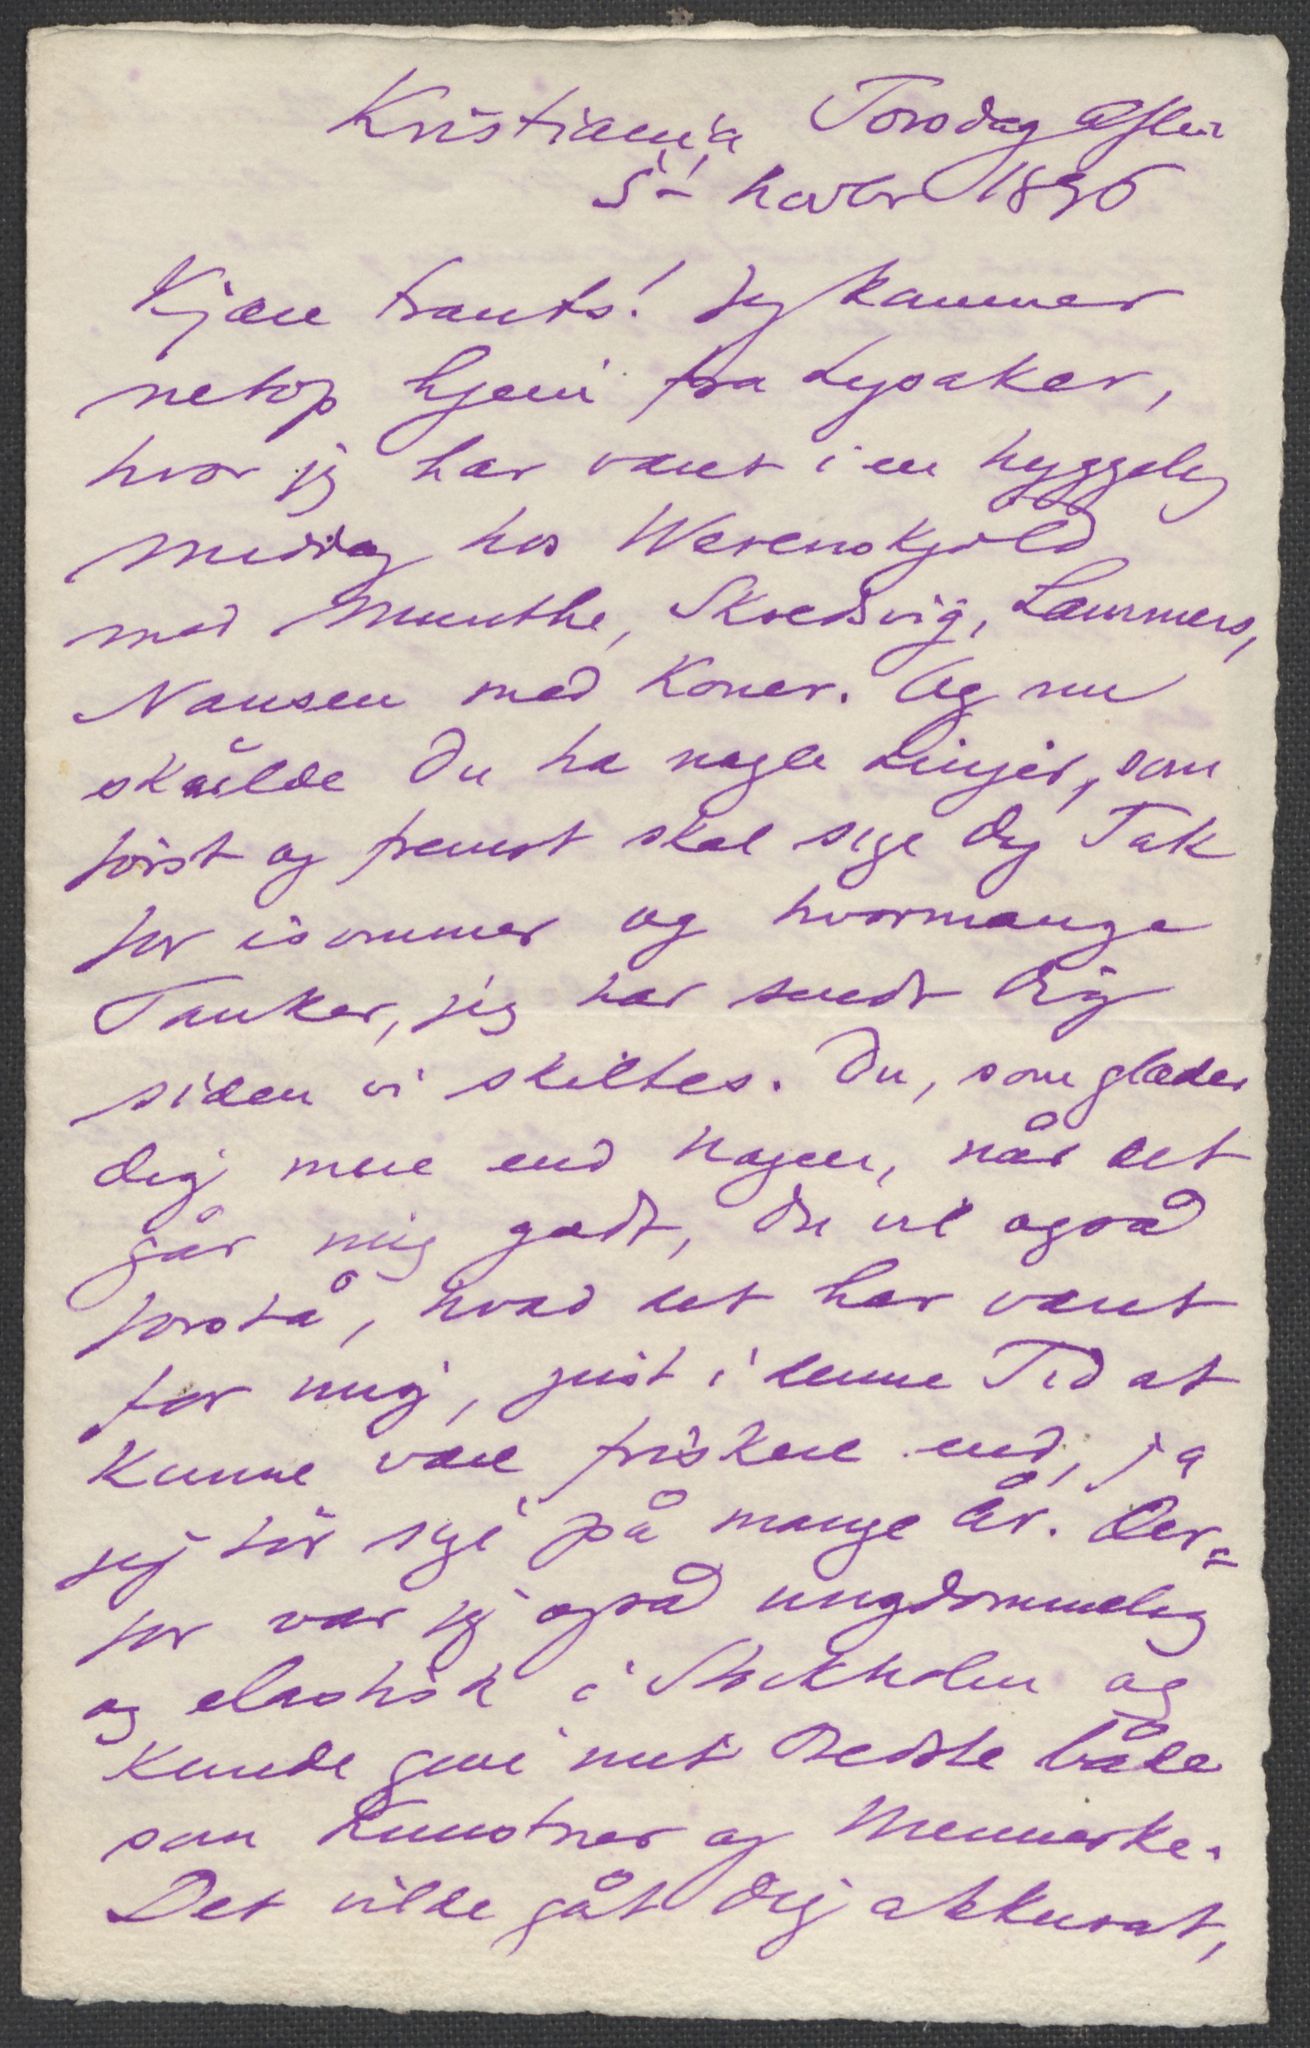 Kristiania Torsdag Aften
5te Novbr 1896
Kjære Frants! Jeg kommer
netop hjem fra Lysaker,
hvor jeg har været i en hyggelig
Middag hos Werenskjold
med Munthe, Skredsvig, Lammers,
Nansen med Koner. Og nu
skulde Du ha nogle Linjer, som
først og fremst skal sige Dig Tak
for isommer og hvormange
Tanker, jeg har sendt Dig
siden vi skiltes. Du, som glæder
Dig mere end Nogen, når det
går mig godt, Du vil også
forstå, hvad det har været
for mig, just i denne Tid at
kunne være friskere end, ja
jeg tør sige på mange År. Der=
for var jeg også ungdommelig
og elastisk i Stockholm og
kunde give mit Bedste både
som Kunstner og Menneske.
Det vilde gåt Dig akkurat,